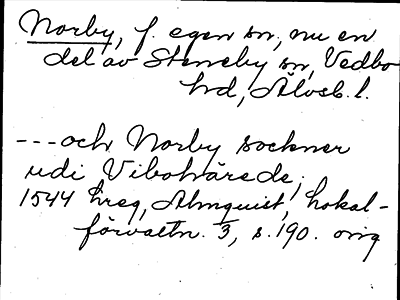 Norby, f. egen sn, nu en
del av Steneby sn, Vedbo
hd, Älvsb. l.
---och Norby sockner
udi Vibohärede;
1544 hreg, Almquist, Lokal-
förvaltn. 3, s. 190. orig